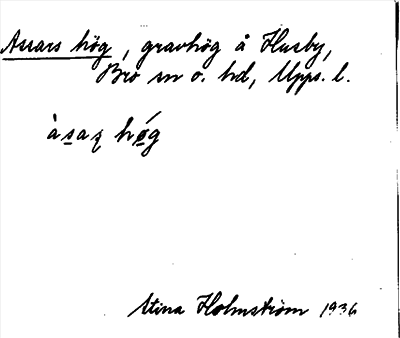 Assars hög, gravhög å Husby,
Bro sn o. hd, Upps. l.
àsaʐ hǿg
Stina Holmström 1936